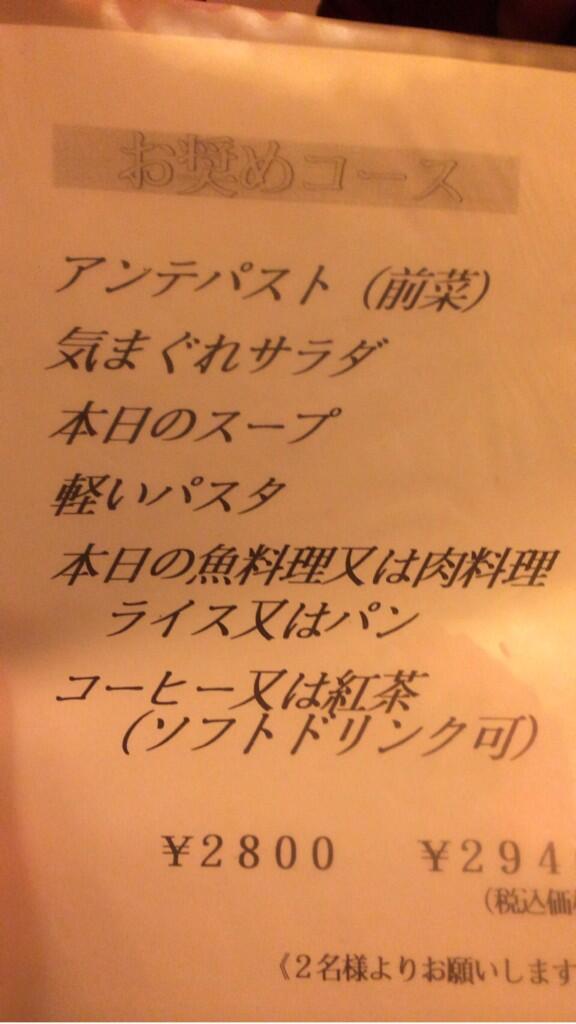 お奨めコース
アンテパスト（前菜）
気まぐれサラダ
本日のスープ
軽いパスタ
本日の魚料理又は肉料理
ライス又はパン
コーヒー又は紅茶
（ソフトドリンク可）
￥2800 ￥294
（税込価
《2名様よりお願いします